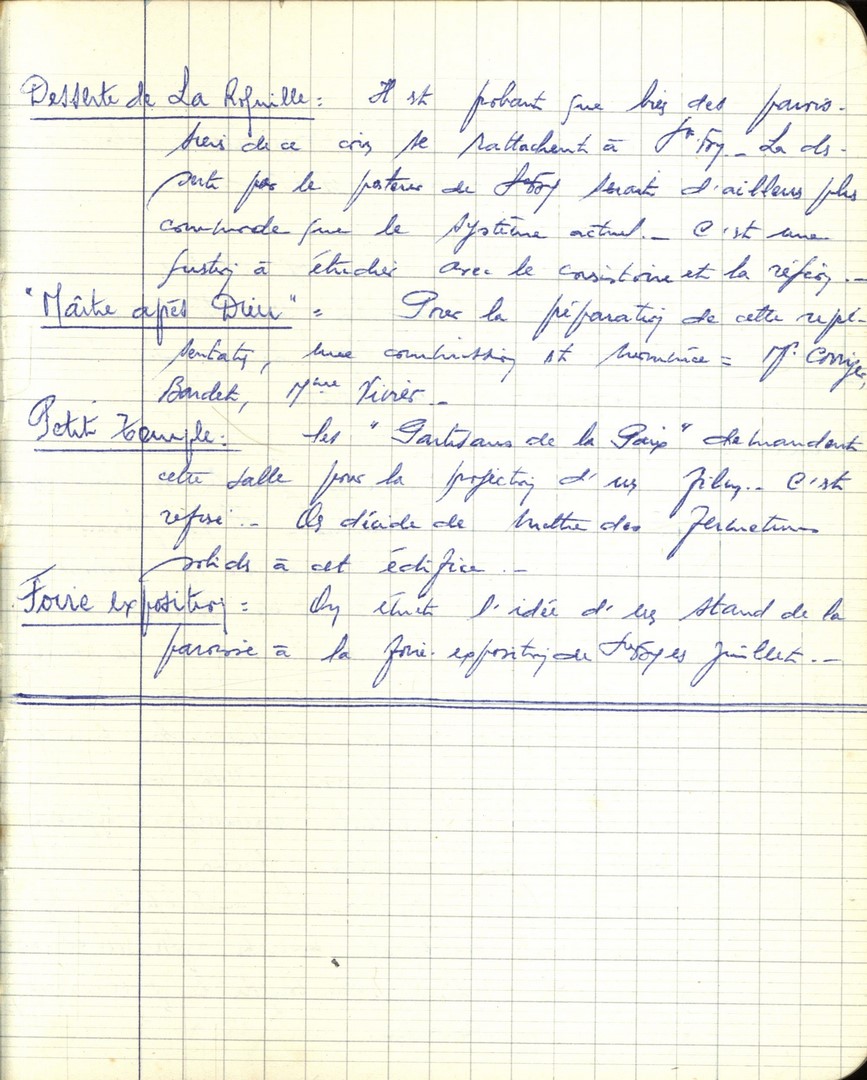 Desserte de La Rofuille : Il est probant que bien des parois-
siens de ce coin se rattachent à Ste. Foy._ La des-
serte par le pasteur de Ste Foy serait d'ailleurs plus
commode que le système actuel._ C'est une
question à étudier avec le consistoire et la région._
"Maître après Dieu" = Pour la préparation de cette repré-
sentation, une commission est nommée = Mr.
Bardet, Mme Vivier._
Petit Temple : Les "Partisans de la Paix" demandent
cette salle pour la projection d'un film._ C'est
refusé._ On décide de mettre des fermetures
solides à cet édifice._
Foire exposition = On étudie l'idée d'un stand de la
paroisse à la foire-exposition de Ste Foy en Juillet._